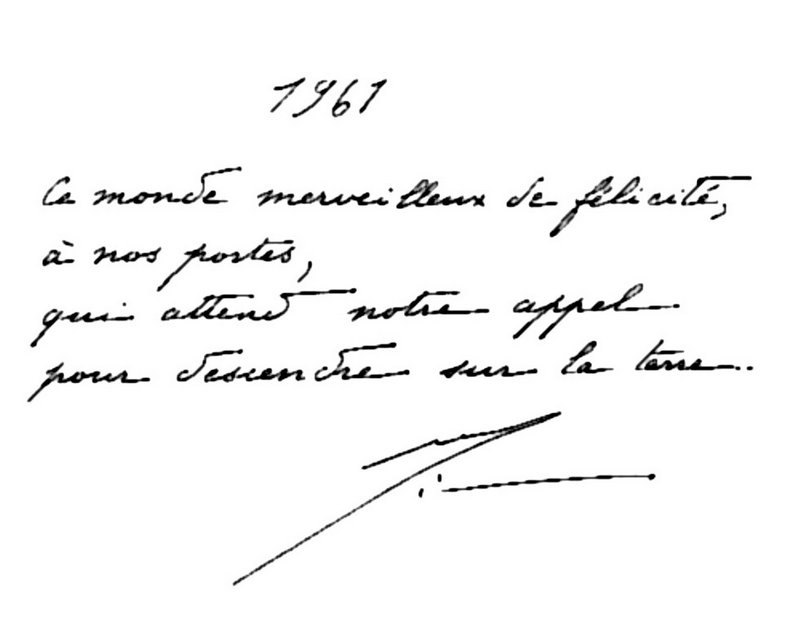 1961
Ce monde merveilleux de félicité,
à nos portes,
qui attend notre appel
pour descendre sur la terre..